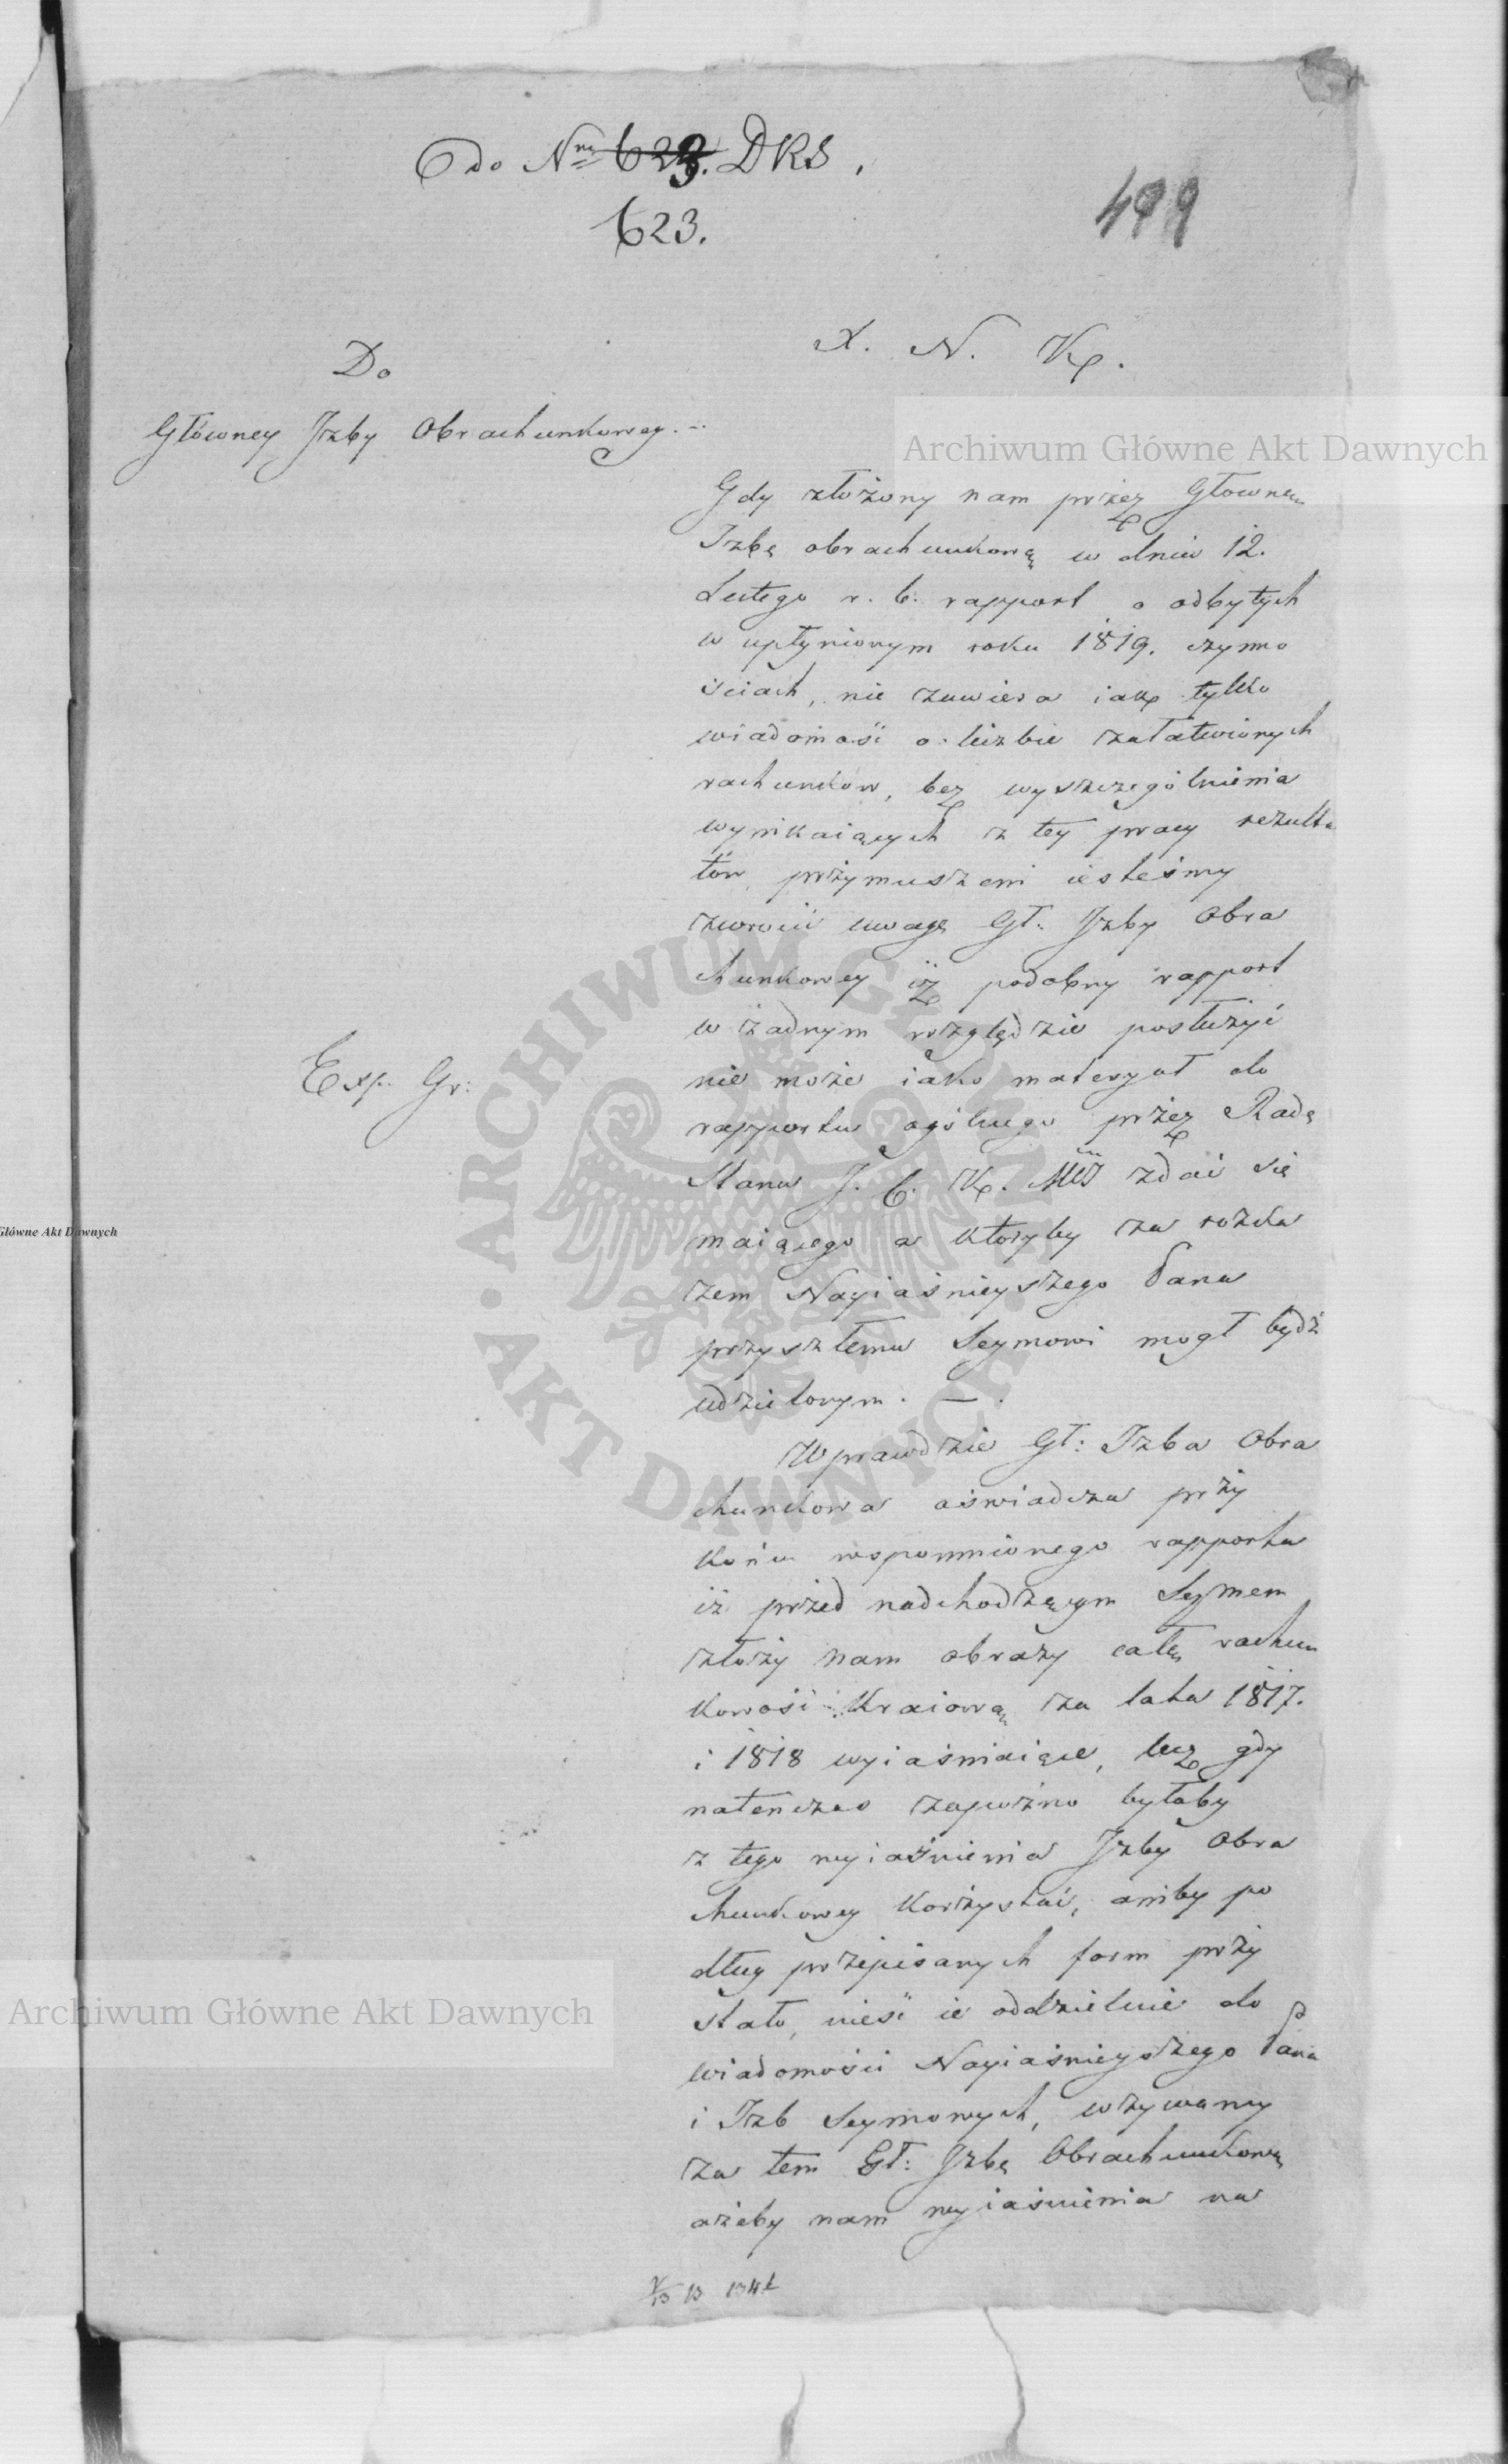 do Nru 623. DRS,
623.
499
X. N. K.
Do
Główney Jzby Obrachunkowey.
Gdy złożony nam przez Głowną
Jzbę obrachunkową w dniu 12.
Lutego r. b. rapport o odbytych
w upłynionym roku 1819. czynno
ściach, nie zawiera iak tylko
wiadomość o liczbie załatwionych
rachunków, bez wyszczególnienia
wynikaiących z tey pracy rezulta
tów przymuszeni iesteśmy
zwrocić uwagę Gł: Jzby Obra
chunkowey iż podobny rapport
w żadnym względzie posłużyć
nie może iako materyał do
rapportu ogólnego przez Radę
Stanu J. C. K. Mci zdać się
maiącego a któryby za rozka
zem Nayiaśnieyszego Pana
przyszłemu Seymowi mogł bydź
udzielonym. —
Exp. Gr:
Wprawdzie Gł: Jzba Obra
chunkowa oświadcza przy
końcu wspomnionego rapportu
iż przed nadchodzącym Seymem
złoży nam obrazy całą rachun
kowość Kraiową za lata 1817.
i 1818 wyiaśniaiące, lecz gdy
natenczas zapóżno byłoby
z tego wyiaśnienia Jzby Obra
chunkowey korzystać, aniby po
dług przepisanych form przy
stało, nieść ie oddzielnie do
wiadomości Nayiaśnieyszego Pana
i Jzb Seymowych, wzywamy
za tem Gł: Jzbę Obrachunkową
ażeby nam wyiaśnienia na
Archiwum Główne Akt Dawnych
Główne Akt Dawnych
ARCHIWUM GŁÓWNE · AKT DAWNYCH ·
Archiwum Główne Akt Dawnych